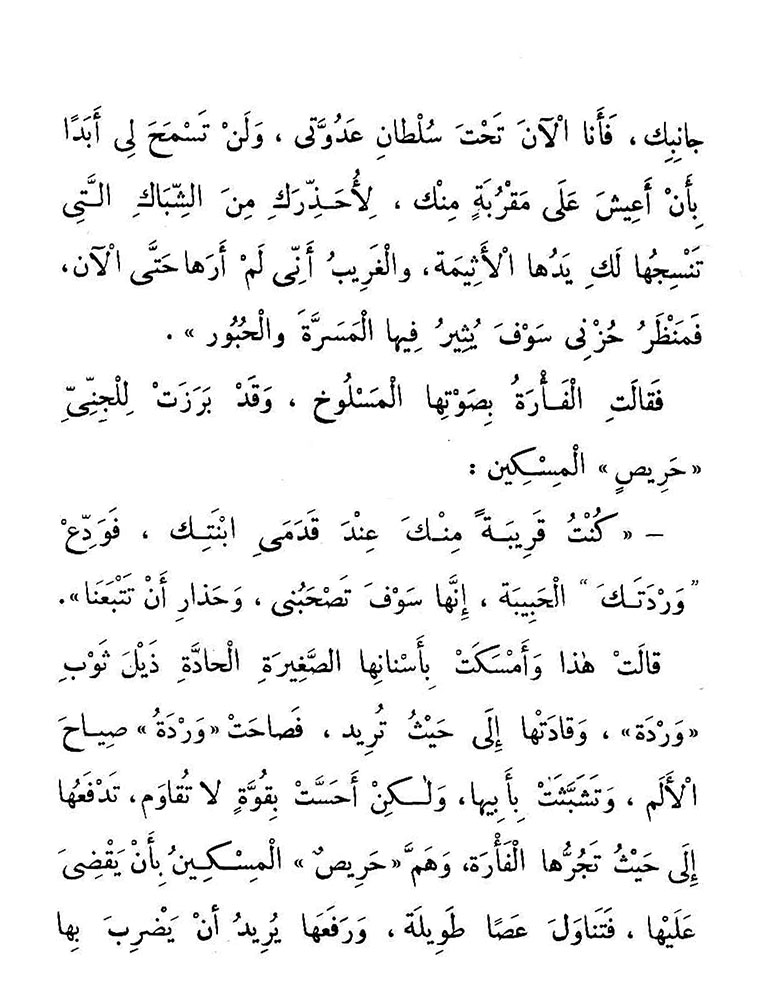 جانِبِك ، فَأَنا الْآنَ تَحْتَ سُلْطانِ عَدُوَّتى ، وَلَنْ تَسْمَحَ لِى أَبَدًا
بِأَنْ أَعِيشَ عَلَى مَقْرُبَةٍ مِنْك ، لِأُحَذِّرَكِ مِنَ الشِّبَاكِ الَّتِى
تَنْسِجُها لَكِ يَدُها الْأَثِيمَة، والْغَرِيبُ أَنِّى لَمْ أَرَها حَتَّى الْآن،
فَمَنْظَرُ حُزْنِى سَوْفَ يُثِيرُ فِيها الْمَسَرَّةَ والْحُبُور » .
فَقالَتِ الْفَـأْرَةُ بِصَوْتِها الْمَسْلُوخ ، وَقَدْ بَرَزَتْ لِلْجِنِّىِّ
« حَرِيصٍ » الْمِسْكِين :
– « كُنْتُ قَرِيبَـةً مِنْـكَ عِنْدَ قَدَمَىِ ابْنَتِـك ، فَوَدِّعْ
” وَرْدَتَـكَ “ الْحَبِيبَة ، إِنَّها سَوْفَ تَصْحَبُنى ، وَحَذارِ أَنْ تَتْبَعَنَا ».
قالَتْ هٰذا وَأَمْسَكَتْ بِأَسْنانِها الصَّغِيرَةِ الْحادَّةِ ذَيْلَ ثَوْبِ
« وَرْدَة » ، وَقادَتْها إِلَى حَيْثُ تُرِيد ، فَصاحَتْ « وَرْدَةُ » صِيـاحَ
الْأَلَم ، وَتَشَبَّثَتْ بِأَبِيها، وَلٰـكِنْ أَحَسَّتْ بِقُوَّةٍ لا تُقاوَم، تَدْفَعُها
إِلَى حَيْثُ تَجُرُّها الْفَأْرَة، وَهَمَّ « حَرِيصٌ » الْمِسْكِـينُ بِأَنْ يَقْضِىَ
عَلَيْها ، فَتَناوَلَ عَصًا طَوِيلَة ، وَرَفَعَها يُرِيدُ أَنْ يَضْرِبَ بِها